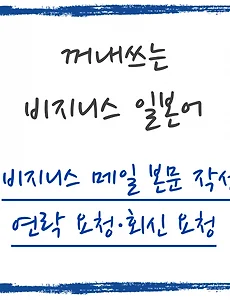 꺼내쓰는
비지니스 일본어
비지니스 메일 본문 작성
연락 요청·회신 요청